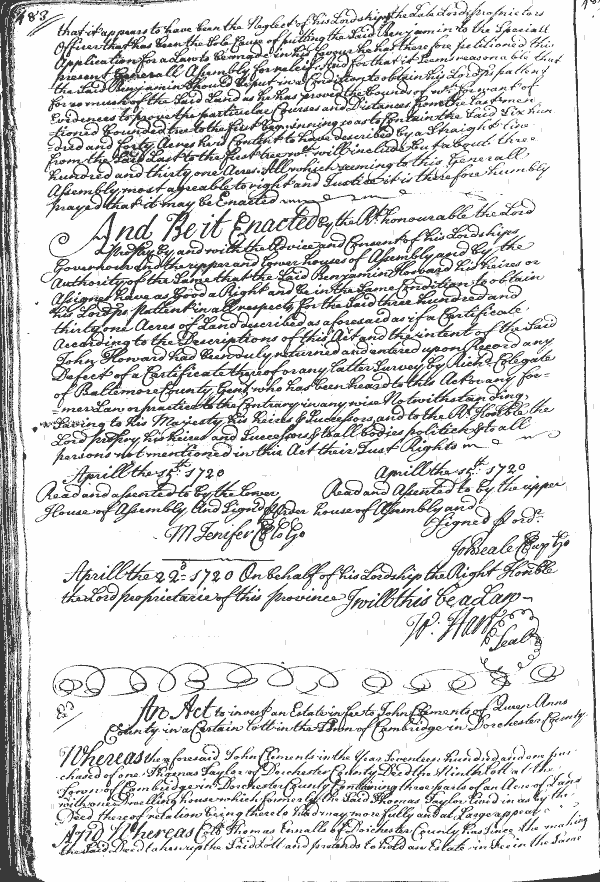 483
that it appears to have been the Neglect of his Lordships the Late Lord proprietors
Officer that has been the Sole Cause of putting the Said Benjamin to the Speciall
Application for a Law to be made in his favour he has therefore petitioned this
present Generall Assembly for releif And for that it seems reasonable that
the Said Benjamin Should be put in a Condition to obtain his Lordsps patent
for so much of the Said Land as he has proved the bounds of wth for want of
Evidences to prove the particular Courses and Distances from the Last men
tioned bounded tree to the first beginning so as to Contain the Said Six hun
dred and forty Acres he is Content to have described by a Straight line
from the Said Last to the first tree wch will include but about three
hundred and thirty one Acres All which seeming to this Generall
Assembly most agreeable to right and Justice it is therefore humbly
prayed that it may be Enacted
And Be it Enacted by the Rt. honourable the Lord
Propry by and with the Advice and Consent of his Lordships
Governour and the upper and Lower houses of Assembly and by the
Authority of the Same that the Said Benjamin Howard his heires or
Assignes have as Good a Right and be in the Same Condition to obtain
his Lordsps patent in all respects for the Said three hundred and
thirty one Acres of Land described as aforesaid as if a Certificate
According to the Descriptions of this Act and the intent of the Said
John Howard had been duly returned and entered upon Record any
Defect of a Certificate thereof or any latter Survey by Richd Colegate
of Baltemore County Gent who has been heard to this Act or any for-
mer Law or practice to the Contrary in any wise Notwithstanding
Saving to His Majesty his heires & Successors and to the Rt. Honble the
Lord propry his heires and Successors & to all bodies politick & to all
persons not mentioned in this Act their Just Rights
Aprill the 15th 1720
Read and assented to by the Lower
House of Assembly And Signed p Order
M Jenifer Cl Lo Ho
Aprill the 15th 1720
Read and Assented to by the upper
house of Assembly and
Signed p ordr.
Jo Beale Cl up Ho
Aprill the 22d 1720 On behalf of his Lordship the Right Honble
the Lord proprietarie of this province I will this be a Law
Jo. Hart
Seal
An Act to invest an Estate in fee to John Clements of Queen Anns
County in a Certain Lott in the Town of Cambridge in Dorchester County
Whereas the aforesaid John Clements in the Year Seventeen hundred and one pur
chased of one Thomas Taylor of Dorchester County Decd the Ninth Lott at the
Town of Cambridge in Dorchester County Containing three parts of an Acre of Land
with one dwelling house which formerly the Said Thomas Taylor lived in as by the
Deed thereof relation being thereto had may more fully and at Large appear
And Whereas Colo Thomas Ennalls of Dorchester County has Since the making
the Said Deed taken up the Said Lott and pretends to hold an Estate in fee in the Same